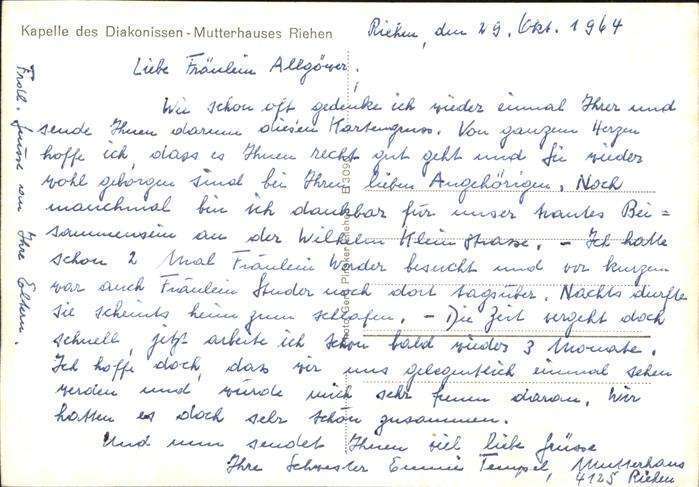 Kapelle des Diakonissen-Mutterhauses Riehen
Riehen, den 29. Okt. 1964
Liebe Fräulein Allgöwer,
Wie schon oft gedenke ich wieder einmal Ihrer und
sende Ihnen darum diesen Kartengruss. Von ganzem Herzen
hoffe ich, dass es Ihnen recht gut geht und Sie wieder
wohl geborgen sind bei Ihren lieben Angehörigen. Noch
manchmal bin ich dankbar für unser trautes Bei=
sammensein an der Wilhelm Klein Strasse. – Ich hatte
schon 2 Mal Fräulein Werder besucht und vor kurzem
war auch Fräulein Studer noch dort tagsüber. Nachts durfte
sie scheints heim zum schlafen. – Die Zeit vergeht doch
schnell, jetzt arbeite ich schon bald wieder 3 Monate.
Ich hoffe doch, dass wir uns gelegentlich einmal sehen
werden und würde mich sehr freuen daran. Wir
hatten es doch sehr schön zusammen.
Und nun sendet Ihnen viel liebe Grüsse
Ihre Schwester Emmie Tempel, Mutterhaus
4125 Riehen
Frdl. Grüsse an Ihre Eltern.